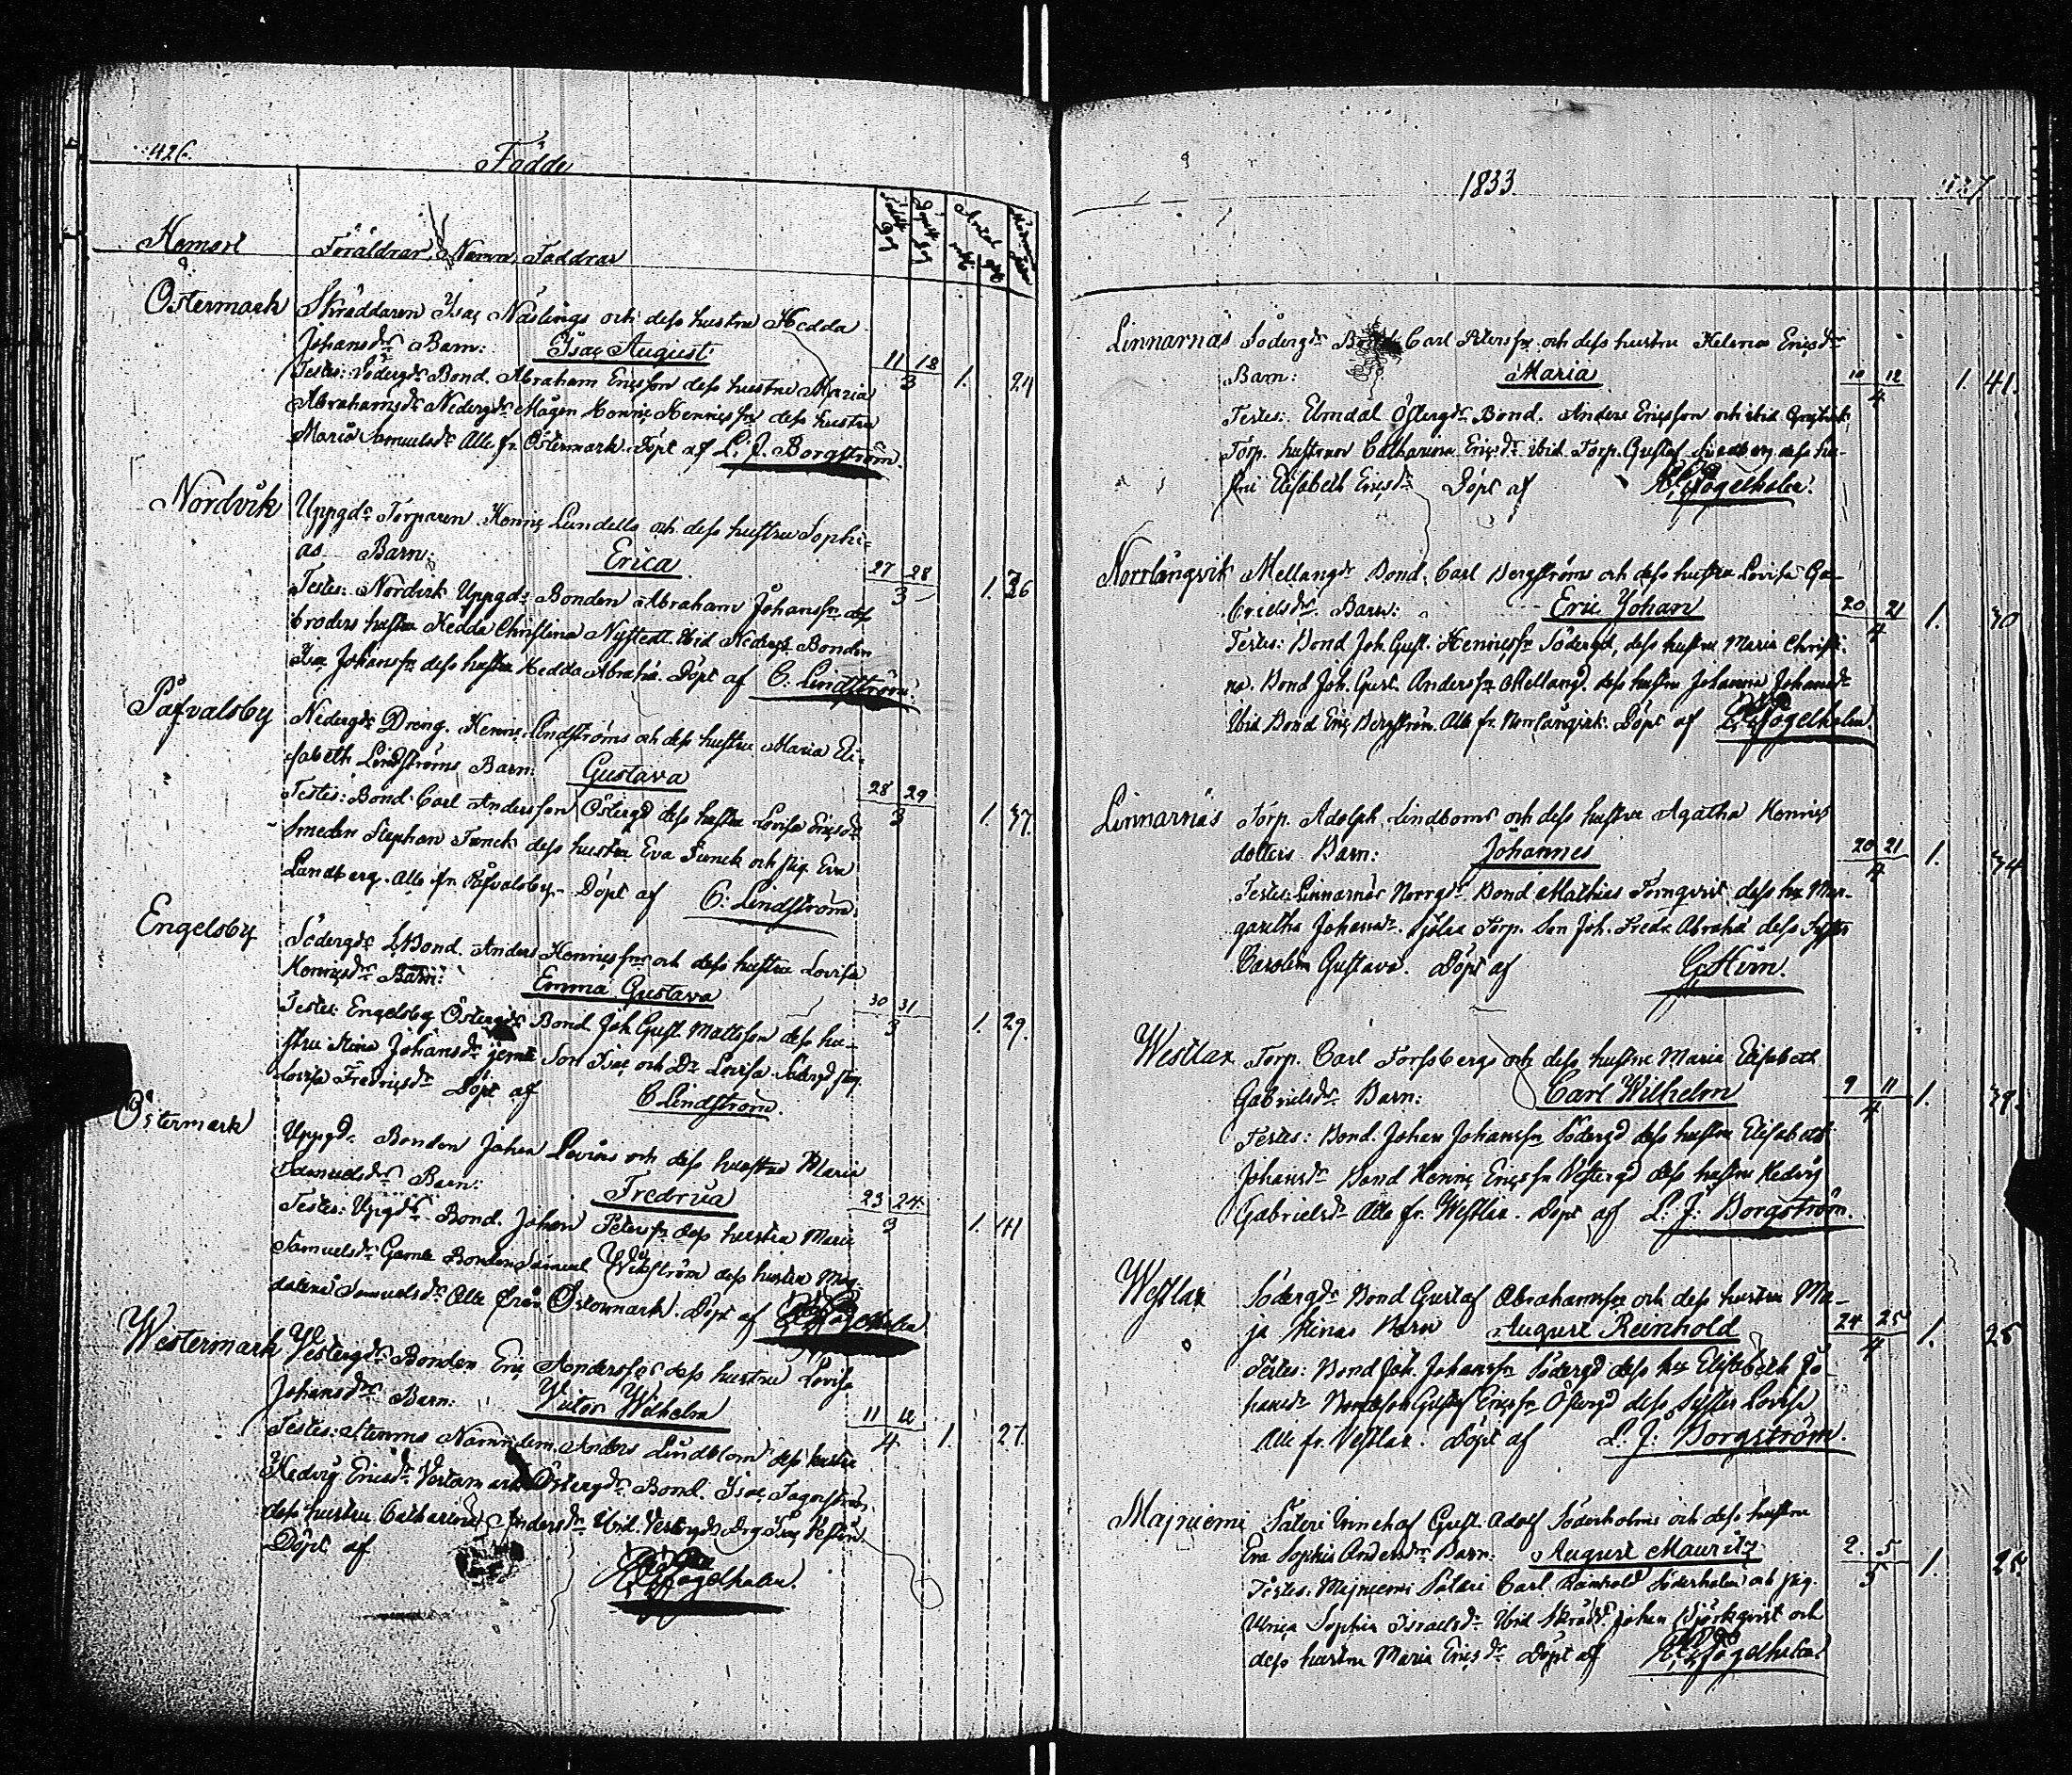 426.
Födde
Hemort
Föräldrar, Namn, Faddrar
Födelse Dag
Döpelse Dag
Antal
Östermark Skräddaren Isac Näslings och dess hustru Hedda
Johansdrs Barn: Isac August 11 18 3 1. 24
Testes: Södergds Bond. Abraham Ericsson dess hustru Maria
Abrahamsdr Nedergds Mågen Henric Henricsson dess hustru
Maria Samuelsdr Alle fr. Östermark. Döpt af L: J. Borgström.
Nordvik Uppgds Torparen Henric Lundells och dess hustru Sophi=
as Barn: Erica 27 28 3 1. 36
Testes: Nordvik Uppgds Bonden Abraham Johansson dess
broders hustru Hedda Christina Nystedt. Ibid Nedergds Bonden
Isac Johansson dess hustru Hedda Abrahd. Döpt af C: Lindström.
Påfvalsby Nedergds Dreng. Henric Lindströms och dess hustru Maria Eli-
sabeth Lindströms Barn: Gustava 28 29 3 1. 37.
Testes: Bond. Carl Andersson Östergd dess hustru Lovisa Ericsdr
Smeden Stephan Funck dess hustru Eva Funck och pig. Eva
Lundberg. Alle fr. Påfvalsby. Döpt af C: Lindström.
Engelsby Södergds Bond. Anders Henricsons och dess hustru Lovisa
Henricsdrs Barn: Emma Gustava 30 31 3 1. 29.
Testes: Engelsby Östergds Bond. Joh. Gust. Mattsson dess hu-
stru Stina Johansdr jemte Son Isac och Dr Lovisa. Södergd pig.
Lovisa Fredricsdr Döpt af C Lindström.
Östermark Uppgds Bonden Johan Levins och dess hustru Maria
Samuelsdrs Barn: Fredrica 23 24 3 1. 41
Testes: Uppgds Bond. Johan Petersson dess hustru Maria
Samuelsdr Gamle Bonden Samuel Wikström dess hustru Mag-
dalena Samuelsdr Alle från Östermark. Döpt af Fogelholm
Westermark Vestergds Bonden Eric Anderssons dess hustru Lovisa
Johansdrs Barn: Victor Wilhelm 11 12 4 1. 27.
Testes: Nämndem. Anders Lindblom dess hustru
Hedvig Ericsdr Vestermark Östergds Bond. Isac
dess hustru Catharina Andersdr Ibid. Vestergds Drg Isac
Döpt af Fogelholm.
1833
427
Linnarnäs Södergds Carl Peterssons och dess hustru Helena Ericsdrs
Barn: Maria 10 12 4 1. 41.
Testes: Elmdal Östergds Bond. Anders Ericsson och ibid
Torp. hustrun Catharina Ericsdr ibid Torp. Gustaf dess hu-
stru Elisabeth Ericsdr Döpt af Fogelholm.
Norrlångvik Mellangds Bond. Carl Bergströms och dess hustru Lovisa Ga-
brielsdrs Barn: Eric Johan 20 21 4 1. 30
Testes: Bond Joh. Gust. Henricsson Södergd, dess hustru Maria Christi-
na. Bond Joh. Gust. Andersson Mellangd. dess hustru Johanna Johansdr
Ibid Bond Eric Bergström. Alle fr. Norrlångvik. Döpt af Fogelholm
Linnarnäs Torp. Adolph Lindboms och dess hustru Agatha Henrics
dotters Barn: Johannes 20 21 4 1. 34
Testes: Linnarnäs Norrgds Bond Mathias Törnqvist dess hu Mar-
garetha Johansdr. Torp. Son Joh. Fredr. Abrahd dess Syster
Carolina Gustava. Döpt af
Westlax Torp. Carl Forssbergs och dess hustru Maria Elisabeth
Gabrielsdrs Barn: Carl Wilhelm 9 11 4 1. 39.
Testes: Bond. Johan Johansson Södergd dess hustru Elisabeth
Johansdr Bond Henric Ericsson Vestergd dess hustru Hedvig
Gabrielsdr Alle fr. Westlax. Döpt af L: J: Borgström.
Westlax Södergds Bond Gustaf Abrahamssons och dess hustru Ma-
ja Stinas Barn August Reinhold 24 25 4 1. 25
Testes: Bond Joh. Johansson Södergd dess hu Elisabeth Jo-
hansdr Bond Joh Gustaf Ericsson Östergd dess Syster Lovisa
Alle fr. Vestlax. Döpt af L: J: Borgström.
Majniemi Säteri Innehaf Gust. Adolf Söderholms och dess hustru
Eva Sophia Andersdrs Barn: August Mauritz 2 5 5 1. 25.
Testes. Majniemi Säteri Carl Reinhold Söderholm och pig.
Ulrica Sophia Israelsdr Ibid Skrädd. Johan Björkqvist och
dess hustru Maria Ericsdr Döpt af Fogelholm